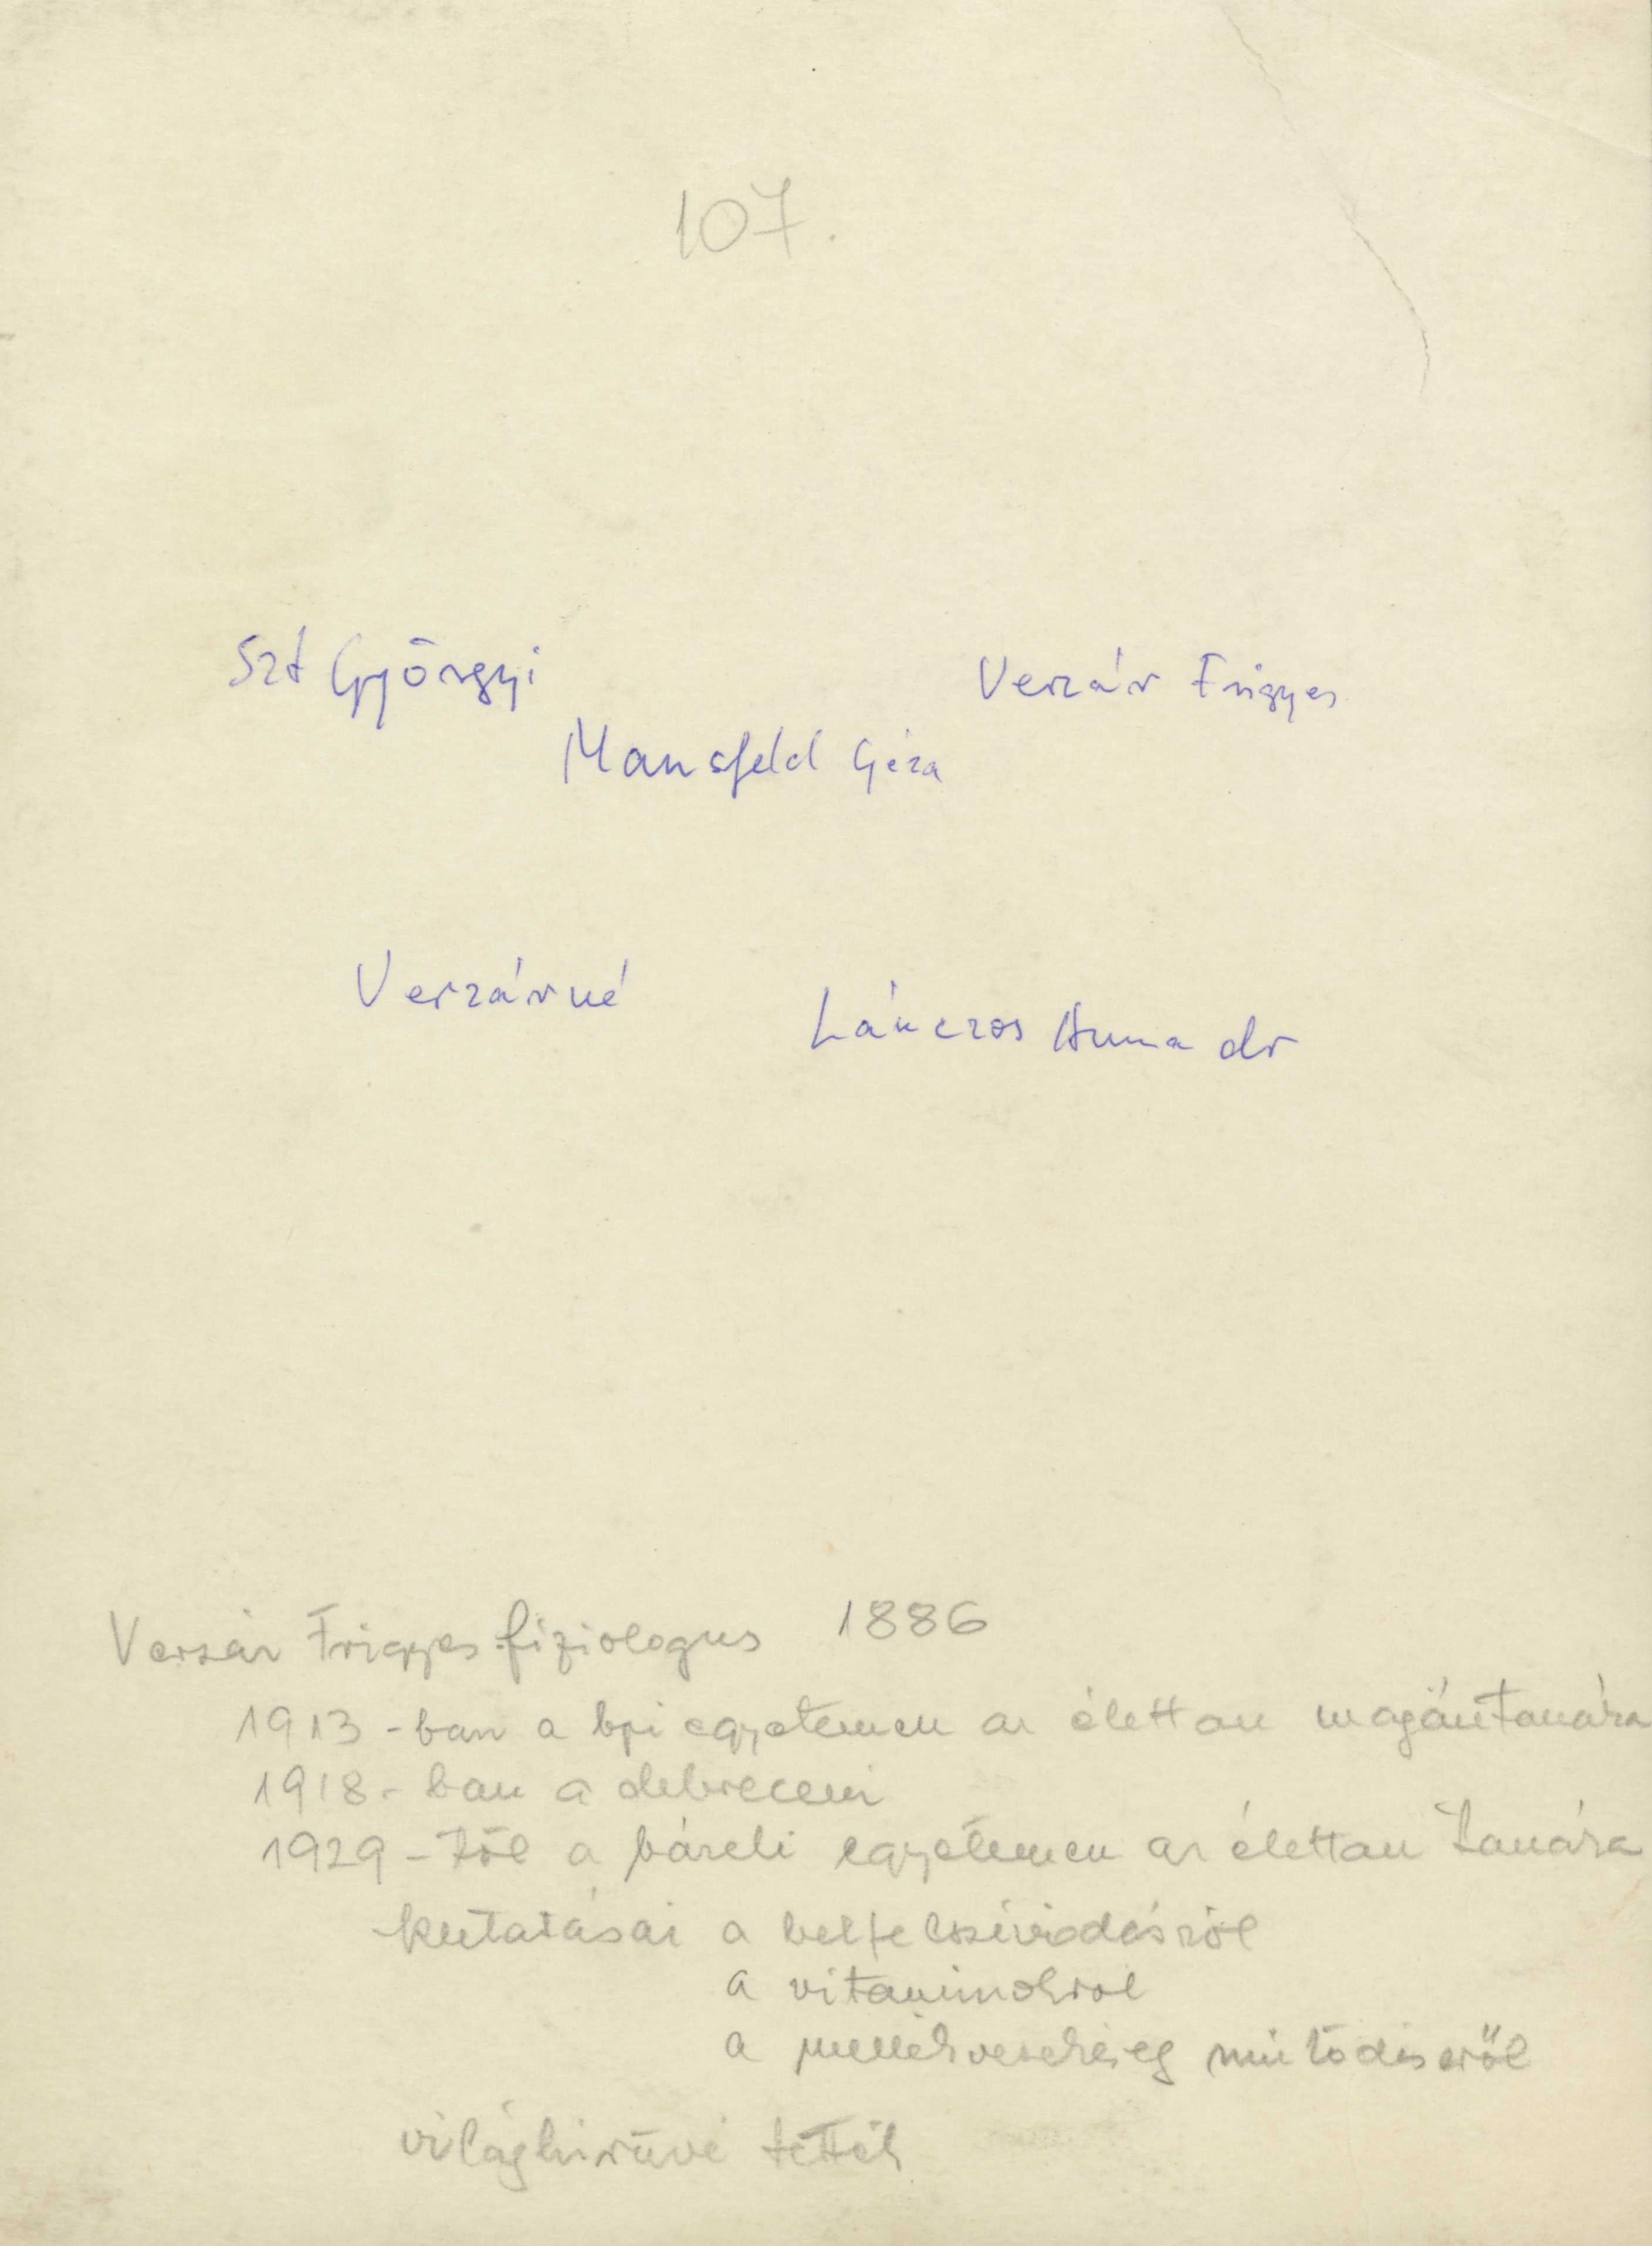 107.
Szt Györgyi
Verzár Frigyes
Mansfeld Géza
Verzárné
Lánczos Anna dr
Verzár Frigyes fiziologus 1886
1913-ban a bpi egyetemen az élettan magántanára
1918-ban a debreceni
1929-től a bázeli egyetemen az élettan tanára
kutatásai a bélfelszívódásról
a vitaminokrol
a mellékvesekéreg müködéséről
világhirüvé tették